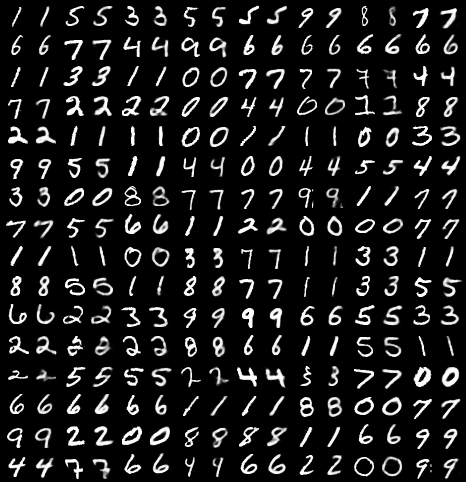 1 1 5 5 3 3 5 5 5 5 9 9 8 8 7 7
6 6 7 7 4 4 9 9 6 6 6 6 6 6 6 6
1 1 3 3 1 1 0 0 7 7 7 7 7 7 4 4
7 7 2 2 2 2 0 0 4 4 0 0 1 1 8 8
2 2 1 1 1 1 0 0 1 1 1 1 0 0 3 3
9 9 5 5 1 1 4 4 0 0 4 4 5 5 4 4
3 3 0 0 8 8 7 7 7 7 9 9 1 1 7 7
7 7 5 5 6 6 1 1 2 2 0 0 0 0 7 7
1 1 1 1 0 0 3 3 7 7 1 1 3 3 1 1
8 8 5 5 1 1 8 8 7 7 1 1 3 3 5 5
6 6 2 2 3 3 9 9 9 9 6 6 5 5 3 3
2 2 2 2 2 2 8 8 6 6 1 1 5 5 1 1
2 2 5 5 5 5 2 2 4 4 3 3 7 7 0 0
6 6 6 6 6 6 1 1 1 1 8 8 0 0 7 7
9 9 2 2 0 0 8 8 8 8 1 1 6 6 9 9
4 4 7 7 6 6 9 9 6 6 2 2 0 0 9 9